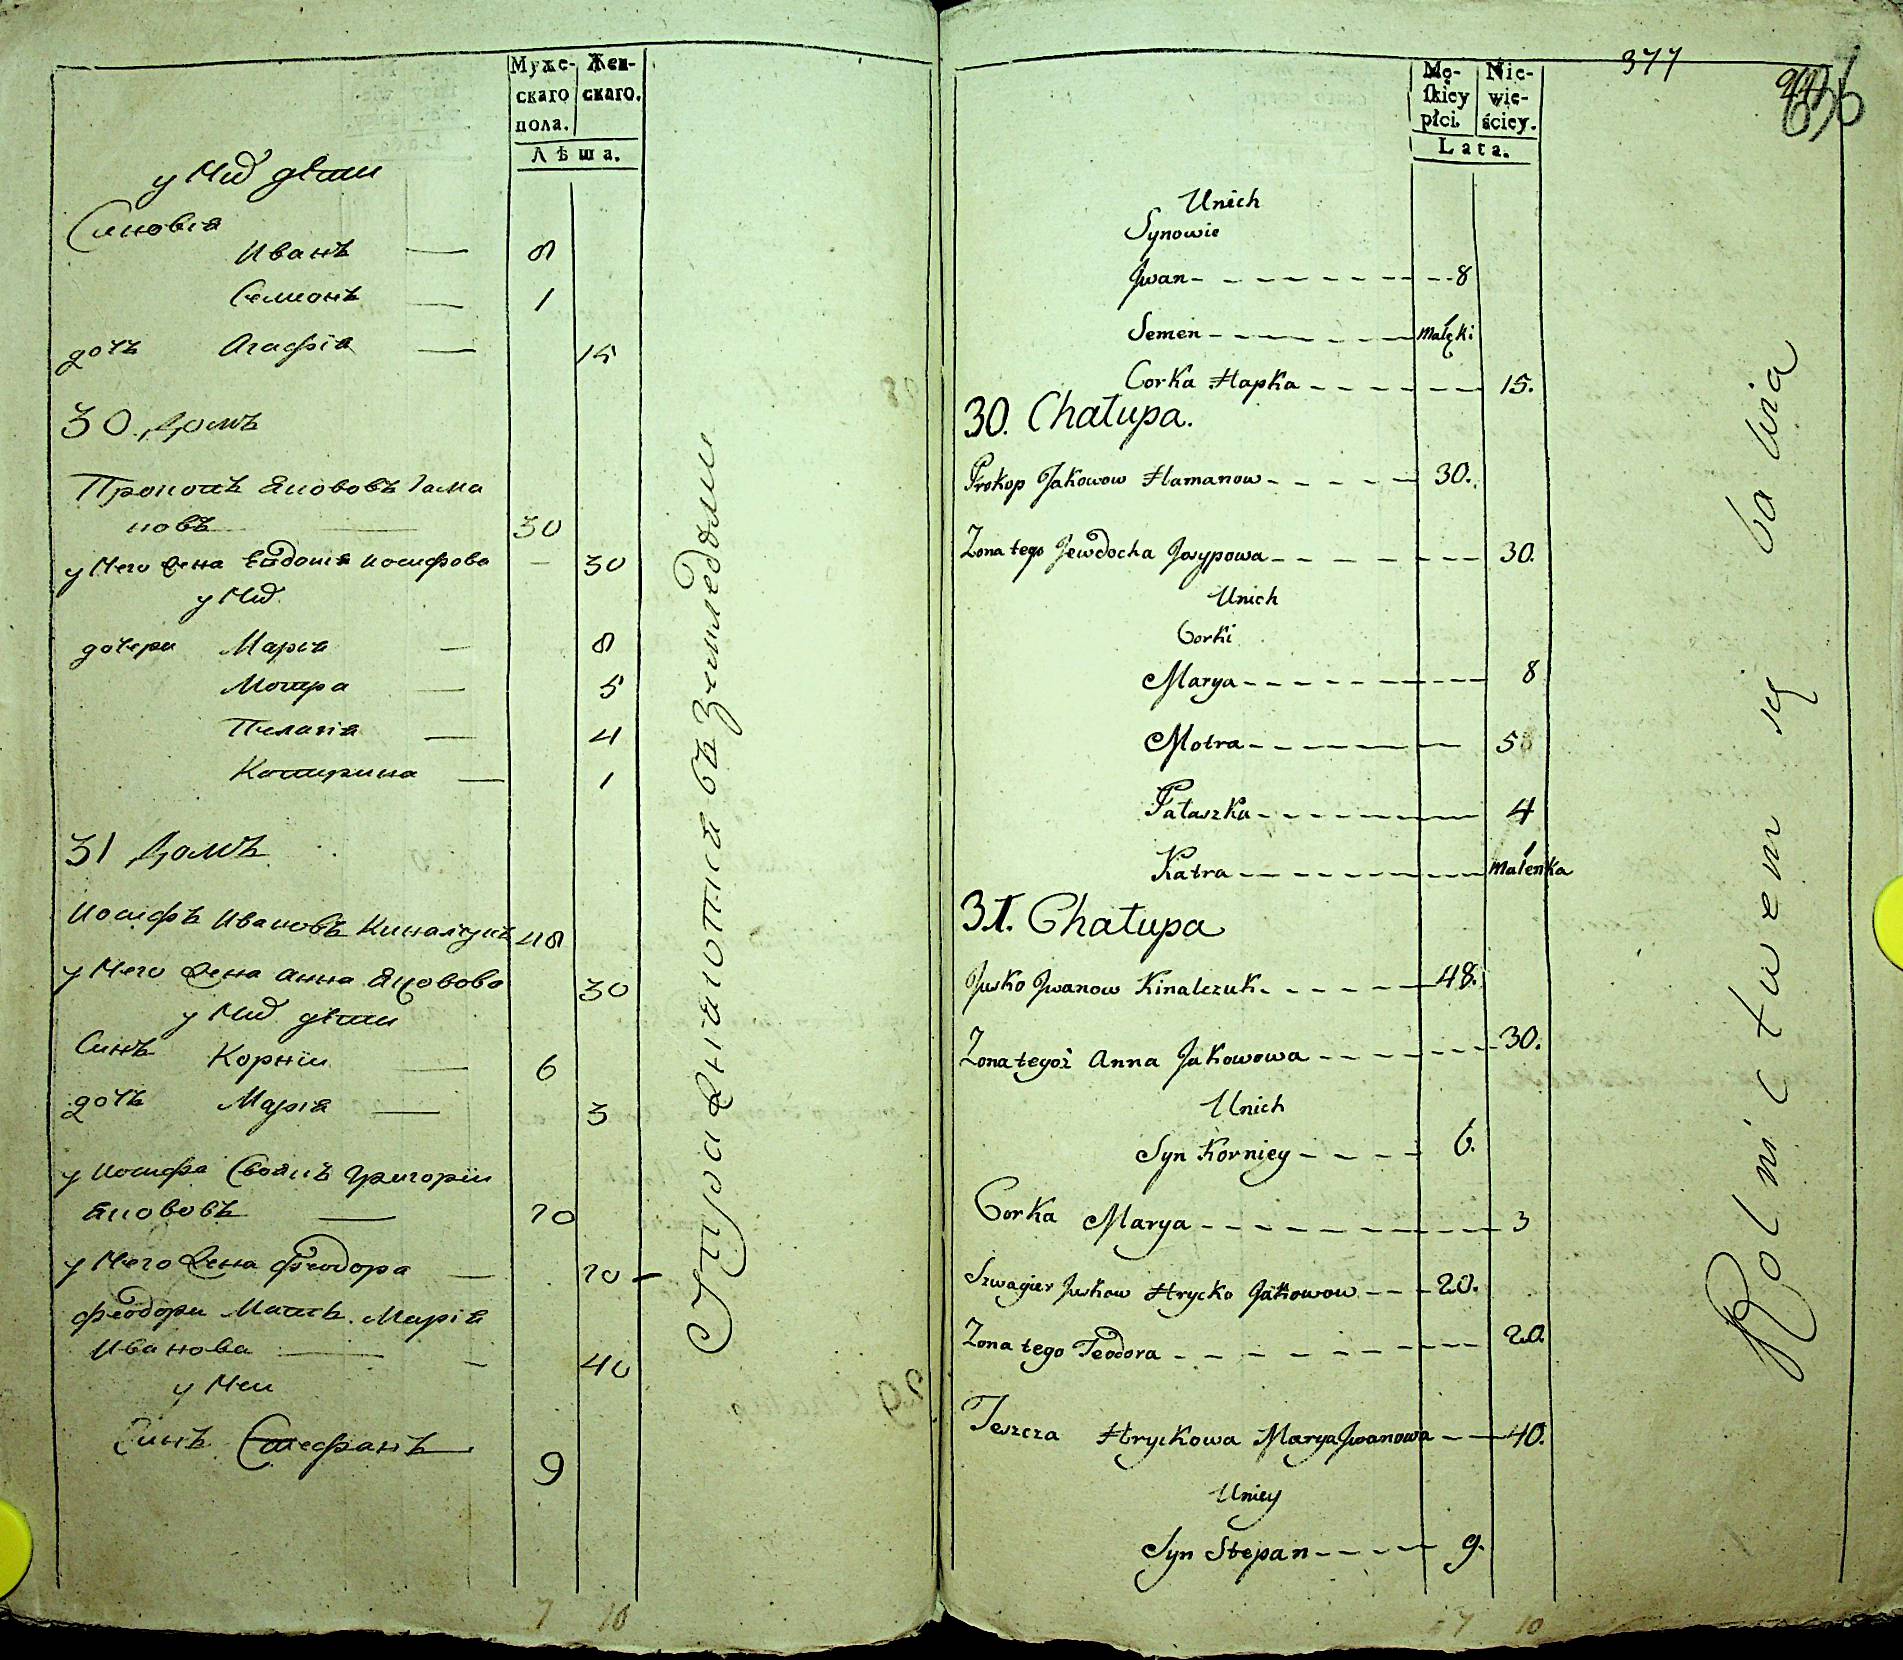 Муже-
скаго
пола.
Жен-
скаго.
Лѣта.
у Нид дѣти
Синовія
Иванъ — 8
Семионъ — 1
дочъ Агафія — 15
30 Домъ
Прокопъ Яцововъ Гама
новъ — 30
у Него жена Евдокія Иосифова — 30
у Нид
дочери Марія — 8
Мотра — 5
Пелагія — 4
Катирина — 1
31 Домъ
Иосифъ Ивановъ Киналчукъ 48
у Него жена Анна Яцовова 30
у Нид дѣти
Синъ Корнїи — 6
дочъ Марія — 3
у Иосифа Своякъ Григорїи
Яцововъ — 20
у Него жена Феодора — 20 —
Феодори Мать Марія
Иванова — 40
у Неи
Синъ Стефанъ 9
Упражнаютца въ Земледоли
7 10
377
Mę-
skiey
płci.
Nie-
wie-
ściey.
Lata.
Unich
Synowie
Jwan - - - - - - - 8
Semen - - - - - - małęki
Corka Hapka - - - - - - 15.
30. Chałupa.
Prokop Jakowow Hamanow - - - - - 30.
Zona tego Jewdocha Josypowa - - - - - 30.
Unich
Corki
Marya - - - - - - - 8
Motra - - - - - - 5
Pałaszka - - - - - - 4
Katra - - - - - - - małenka
31. Chałupa
Jusko Jwanow Kinalczuk - - - - - 48.
Zona tegoż Anna Jakowowa - - - - - - 30.
Unich
Syn Korniey - - - - 6.
Corka Marya - - - - - - - 3
Szwagier Juskow Hrycko Jakowow - - - 20.
Zona tego Teodora - - - - - - - 20
Teszcza Hryckowa Marya Jwanowa - - 40.
Uniey
Syn Stepan - - - - 9.
Rolnictwem się bawia
7 10